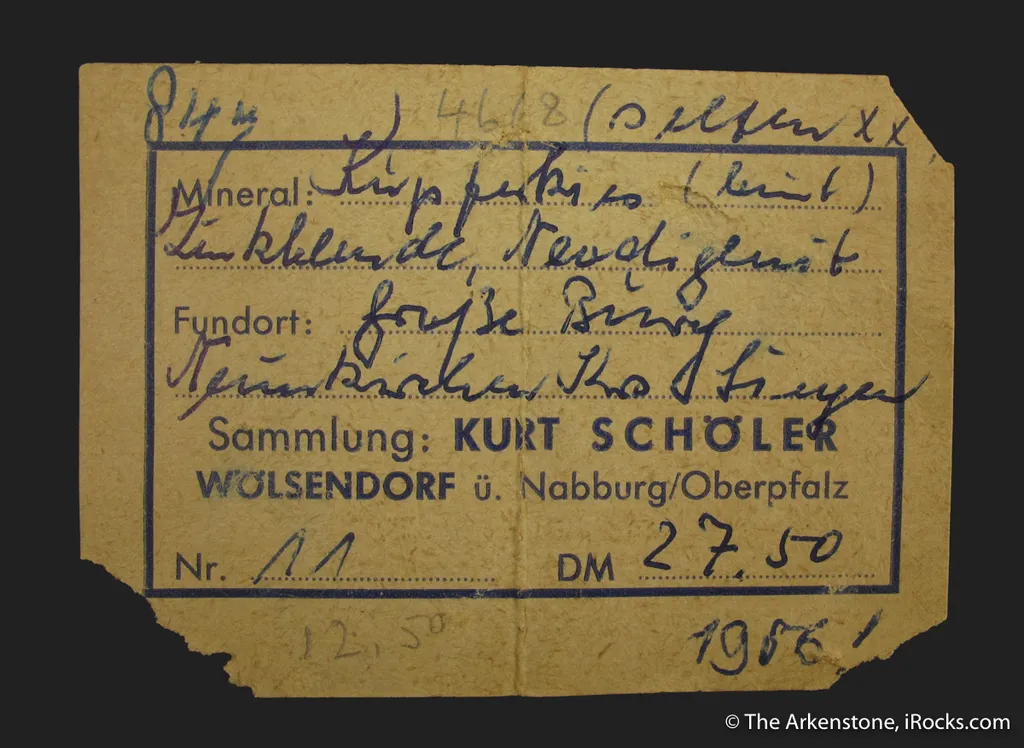 844 ) 4618 (selten xx
Mineral: Kupferkies (bunt)
Zinkblende, Neodigenit
Fundort: Große Burg
Neunkirchen Krs Siegen
Sammlung: KURT SCHÖLER
WÖLSENDORF ü. Nabburg/Oberpfalz
Nr. 11 DM 27.50
12,50 1956!
© The Arkenstone, iRocks.com